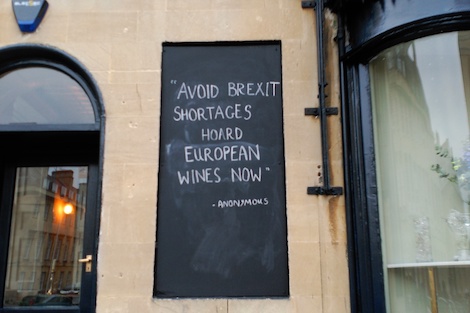 "AVOID BREXIT
SHORTAGES
HOARD
EUROPEAN
WINES NOW"
- ANONYMOUS